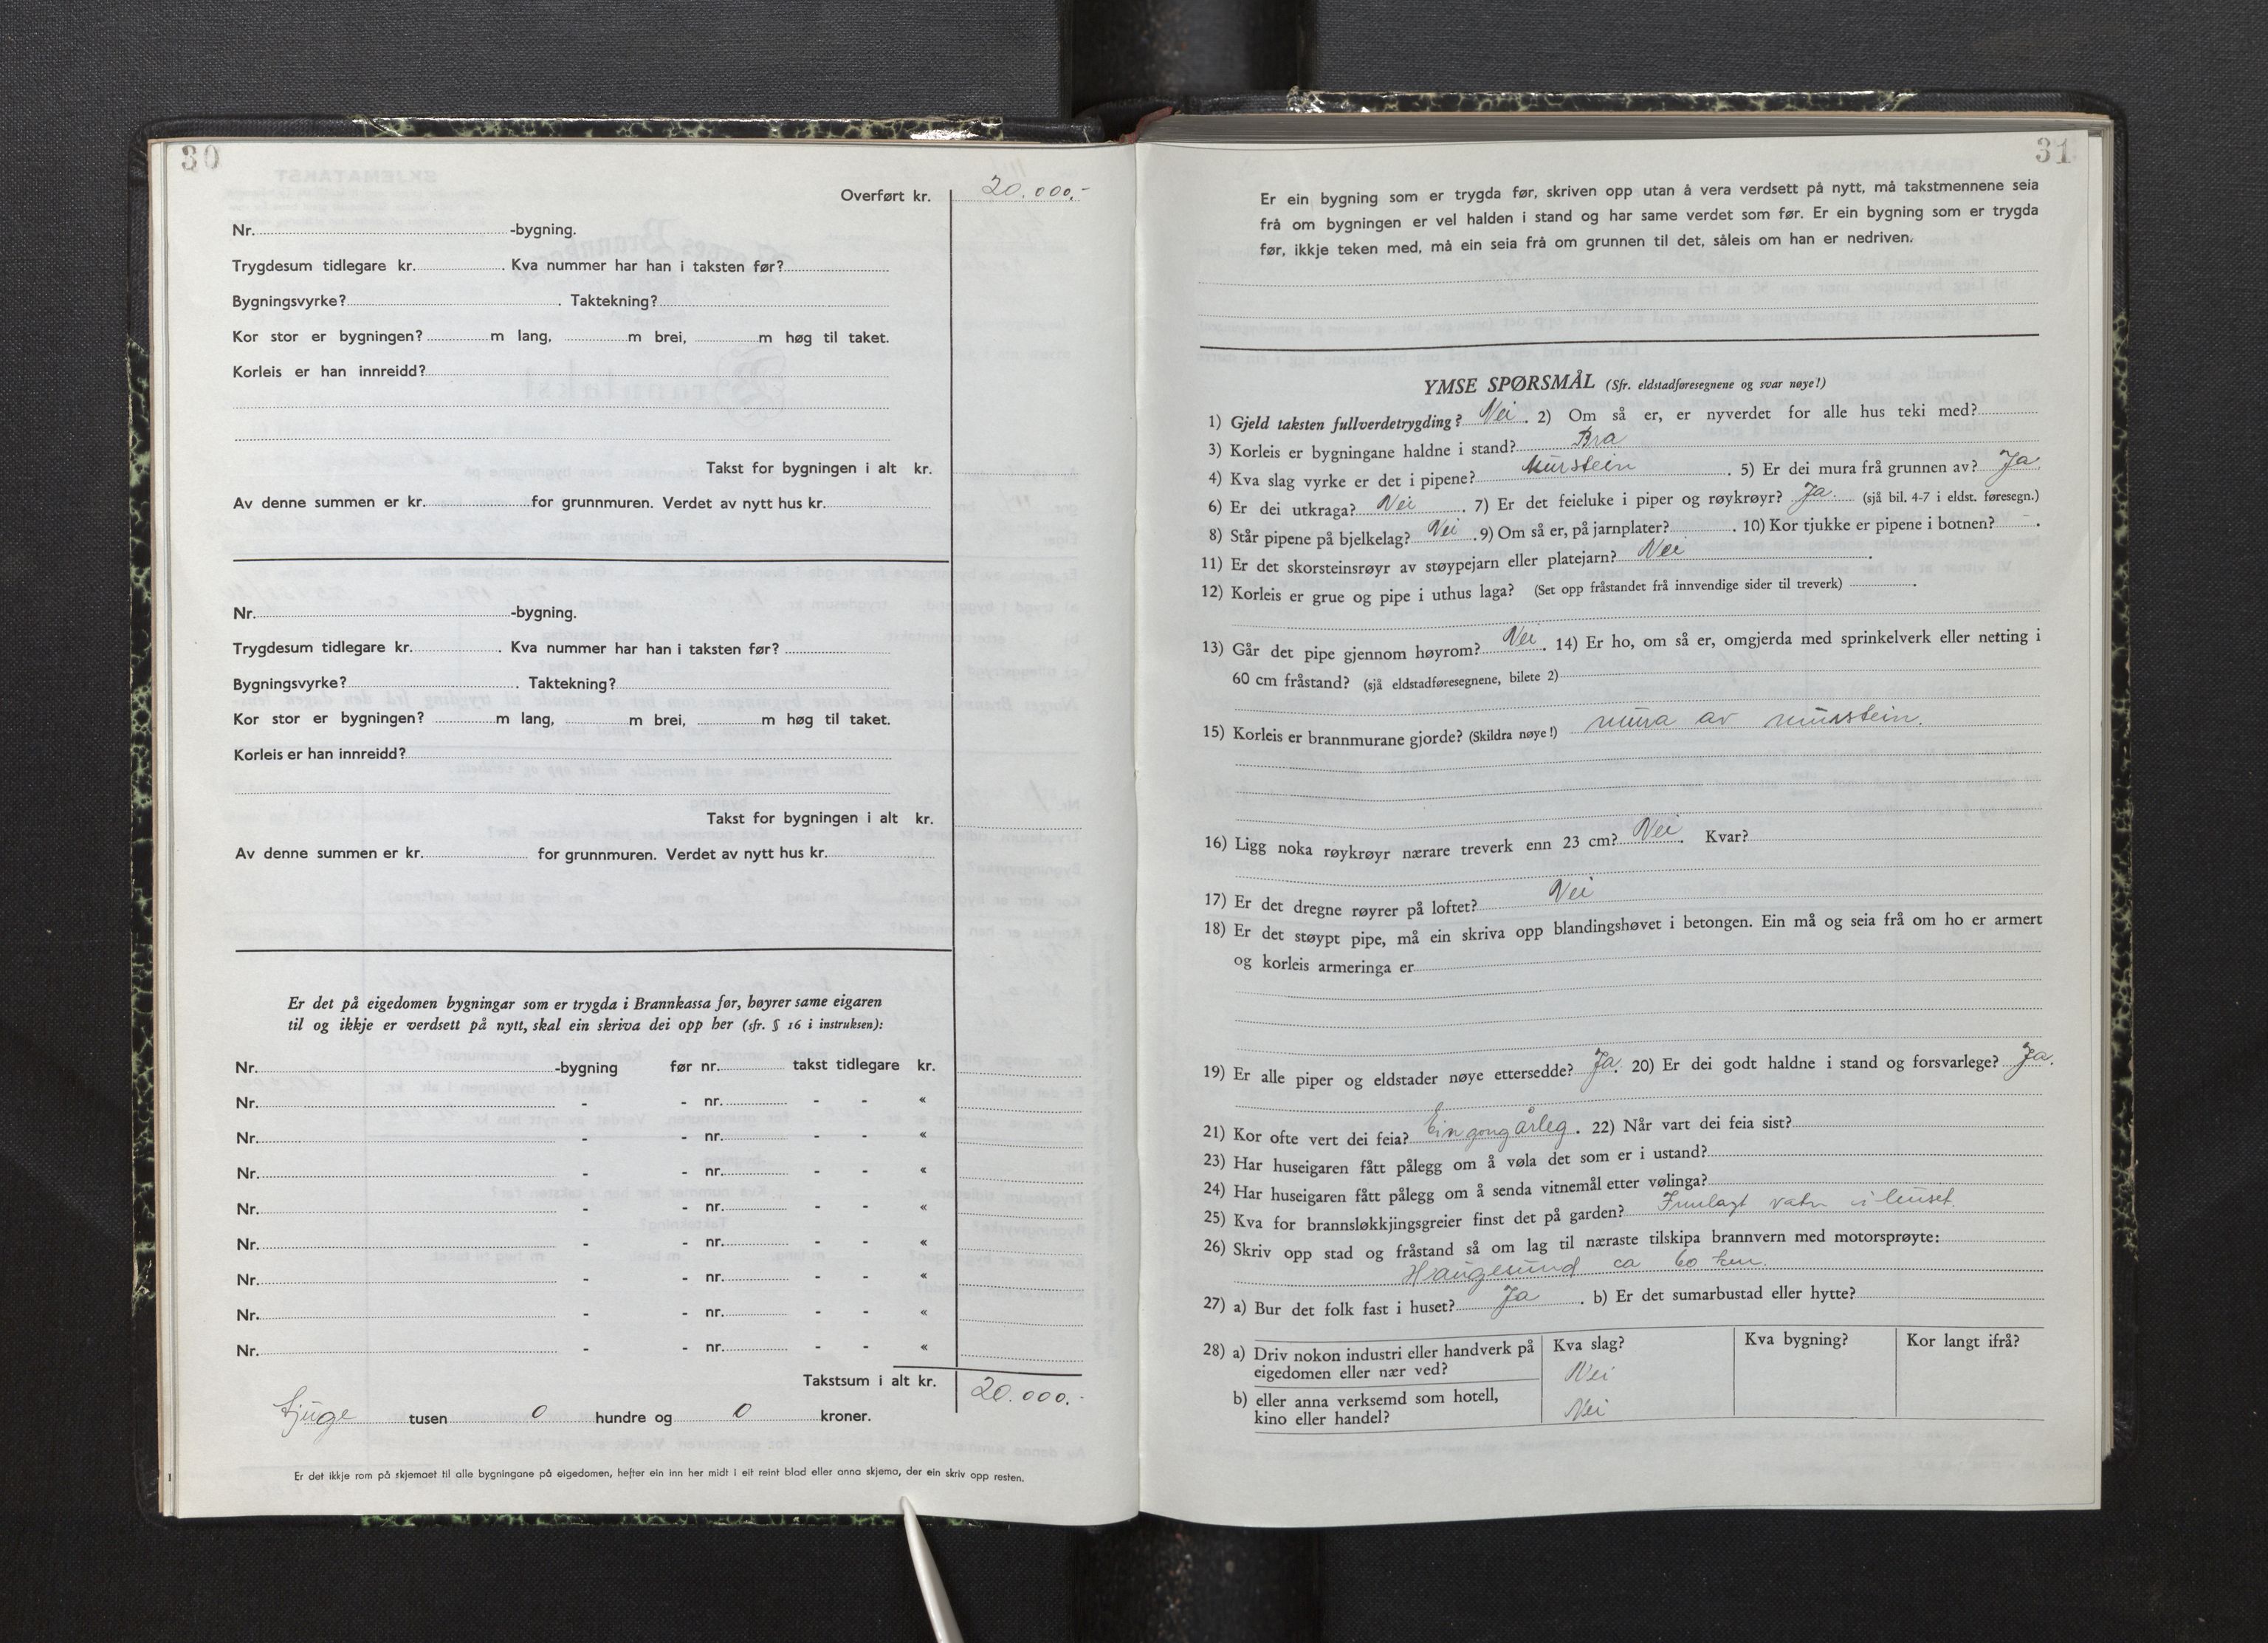 30
Overført kr. 20.000,-
Nr. -bygning.
Trygdesum tidlegare kr. . Kva nummer har han i taksten før?
Bygningsvyrke? . Taktekning?
Kor stor er bygningen? m lang, m brei, m høg til taket.
Korleis er han innreidd?
Takst for bygningen i alt kr.
Av denne summen er kr. for grunnmuren. Verdet av nytt hus kr.
Nr. -bygning.
Trygdesum tidlegare kr. . Kva nummer har han i taksten før?
Bygningsvyrke? . Taktekning?
Kor stor er bygningen? m lang, m brei, m høg til taket.
Korleis er han innreidd?
Takst for bygningen i alt kr.
Av denne summen er kr. for grunnmuren. Verdet av nytt hus kr.
Er det på eigedomen bygningar som er trygda i Brannkassa før, høyrer same eigaren
til og ikkje er verdsett på nytt, skal ein skriva dei opp her (sfr. § 16 i instruksen):
Nr. -bygning før nr. takst tidlegare kr.
Nr. - - nr. - - «
Nr. - - nr. - - «
Nr. - - nr. - - «
Nr. - - nr. - - «
Nr. - - nr. - - «
Nr. - - nr. - - «
Nr. - - nr. - - «
Nr. - - nr. - - «
Takstsum i alt kr. 20.000.-
tjuge tusen 0 hundre og 0 kroner.
Er det ikkje rom på skjemaet til alle bygningane på eigedomen, hefter ein inn her midt i eit reint blad eller anna skjema, der ein skriv opp resten.
31
Er ein bygning som er trygda før, skriven opp utan å vera verdsett på nytt, må takstmennene seia
frå om bygningen er vel halden i stand og har same verdet som før. Er ein bygning som er trygda
før, ikkje teken med, må ein seia frå om grunnen til det, såleis om han er nedriven.
YMSE SPØRSMÅL (Sfr. eldstadføresegnene og svar nøye!)
1) Gjeld taksten fullverdetrygding? Nei . 2) Om så er, er nyverdet for alle hus teki med?
3) Korleis er bygningane haldne i stand? Bra
4) Kva slag vyrke er det i pipene? Murstein . 5) Er dei mura frå grunnen av? Ja
6) Er dei utkraga? Nei . 7) Er det feieluke i piper og røykrøyr? Ja. (sjå bil. 4-7 i eldst. føresegn.)
8) Står pipene på bjelkelag? Nei . 9) Om så er, på jarnplater? . 10) Kor tjukke er pipene i botnen? - .
11) Er det skorsteinsrøyr av støypejarn eller platejarn? Nei .
12) Korleis er grue og pipe i uthus laga? (Set opp fråstandet frå innvendige sider til treverk) .
13) Går det pipe gjennom høyrom? Nei . 14) Er ho, om så er, omgjerda med sprinkelverk eller netting i
60 cm fråstand? (sjå eldstadføresegnene, bilete 2)
15) Korleis er brannmurane gjorde? (Skildra nøye!) mura av murstein.
16) Ligg noka røykrøyr nærare treverk enn 23 cm? Nei . Kvar?
17) Er det dregne røyrer på loftet? Nei
18) Er det støypt pipe, må ein skriva opp blandingshøvet i betongen. Ein må og seia frå om ho er armert
og korleis armeringa er
19) Er alle piper og eldstader nøye ettersedde? Ja. 20) Er dei godt haldne i stand og forsvarlege? Ja.
21) Kor ofte vert dei feia? Ein gong årleg . 22) Når vart dei feia sist?
23) Har huseigaren fått pålegg om å vøla det som er i ustand?
24) Har huseigaren fått pålegg om å senda vitnemål etter vølinga?
25) Kva for brannsløkkjingsgreier finst det på garden? Innlagt vatn i huset.
26) Skriv opp stad og fråstand så om lag til næraste tilskipa brannvern med motorsprøyte:
Haugesund ca 60 km.
27) a) Bur det folk fast i huset? Ja . b) Er det sumarbustad eller hytte?
28) a) Driv nokon industri eller handverk på Kva slag? Kva bygning? Kor langt ifrå?
eigedomen eller nær ved? Nei
b) eller anna verksemd som hotell,
kino eller handel? Nei